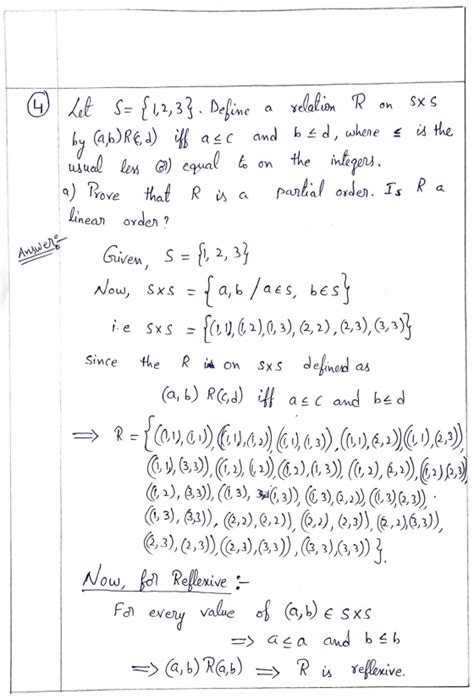 4 Let S = {1,2,3}. Define a relation R on S×S
by (a,b)R(c,d) iff a≤c and b≤d, where ≤ is the
usual less (or) equal to on the integers.
a) Prove that R is a partial order. Is R a
linear order?
Answer:-
Given, S = {1, 2, 3}
Now, S×S = {a,b / a∈S, b∈S}
i.e S×S = {(1,1), (1,2), (1,3), (2,2), (2,3), (3,3)}
Since the R is on S×S defined as
(a,b) R(c,d) iff a≤c and b≤d
⟹ R = {((1,1),(1,1)) ((1,1),(1,2)) ((1,1),(1,3)), ((1,1),(2,2)) ((1,1),(2,3))
((1,1),(3,3)), ((1,2),(1,2)) ((1,2),(1,3)), ((1,2),(2,2)), ((1,2)(2,3))
((1,2),(3,3)), ((1,3), (1,3)), ((1,3),(2,2)), ((1,3)(2,3)).
((1,3),(3,3)), ((2,2),(2,2)), ((2,2),(2,3)), ((2,2),(3,3)),
((2,3),(2,3)), ((2,3),(3,3)), ((3,3),(3,3))}.
Now, for Reflexive :-
For every value of (a,b) ∈ S×S
⟹ a≤a and b≤b
⟹ (a,b) R(a,b) ⟹ R is reflexive.